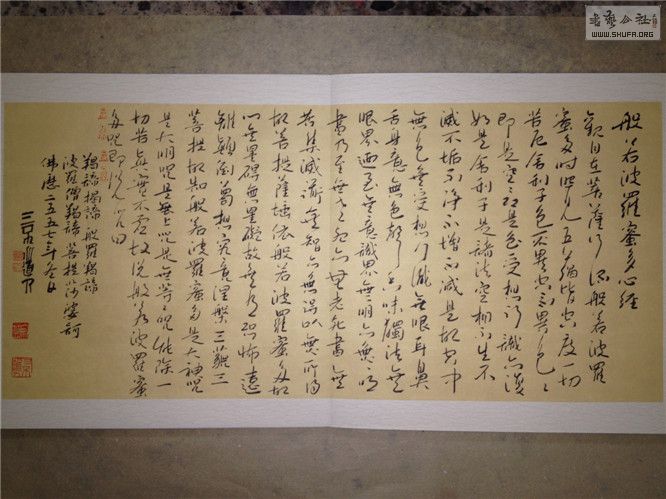 般若波羅蜜多心経
觀自在菩薩行深般若波羅
蜜多時照見五蘊皆空度一切
苦厄舍利子色不異空空不異色色
即是空空即是色受想行識亦復
如是舍利子是諸法空相不生不
滅不垢不淨不增不減是故空中
無色無受想行識無眼耳鼻
舌身意無色聲香味觸法無
眼界乃至無意識界無無明亦無無明
盡乃至無老死亦無老死盡無
苦集滅道無智亦無得以無所得
故菩提薩埵依般若波羅蜜多故
心無罣礙無罣礙故無有恐怖遠
離顛倒夢想究竟涅槃三世諸佛
菩提故知般若波羅蜜多是大神咒
是大明咒是無上咒是無等等咒能除一
切苦真實不虛故說般若波羅蜜
多咒即說咒曰
揭諦揭諦般羅揭諦
波羅僧揭諦菩提薩婆訶
佛歷二五五七年冬日
書藝公社
WWW.SHUFA.ORG